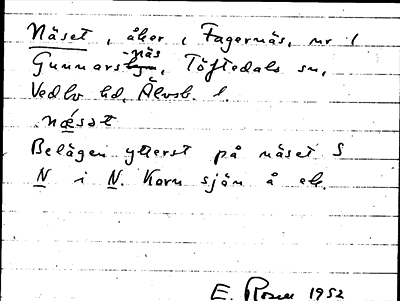 Näset, åker i Fagernäs, nr 1
Gunnarsnäs, Töftedals sn,
Vedbo hd, Älvsb. l.
næ´sət
Belägen ytterst på näset S
N i N. Korn sjön å ek.
E. Rosen 1952